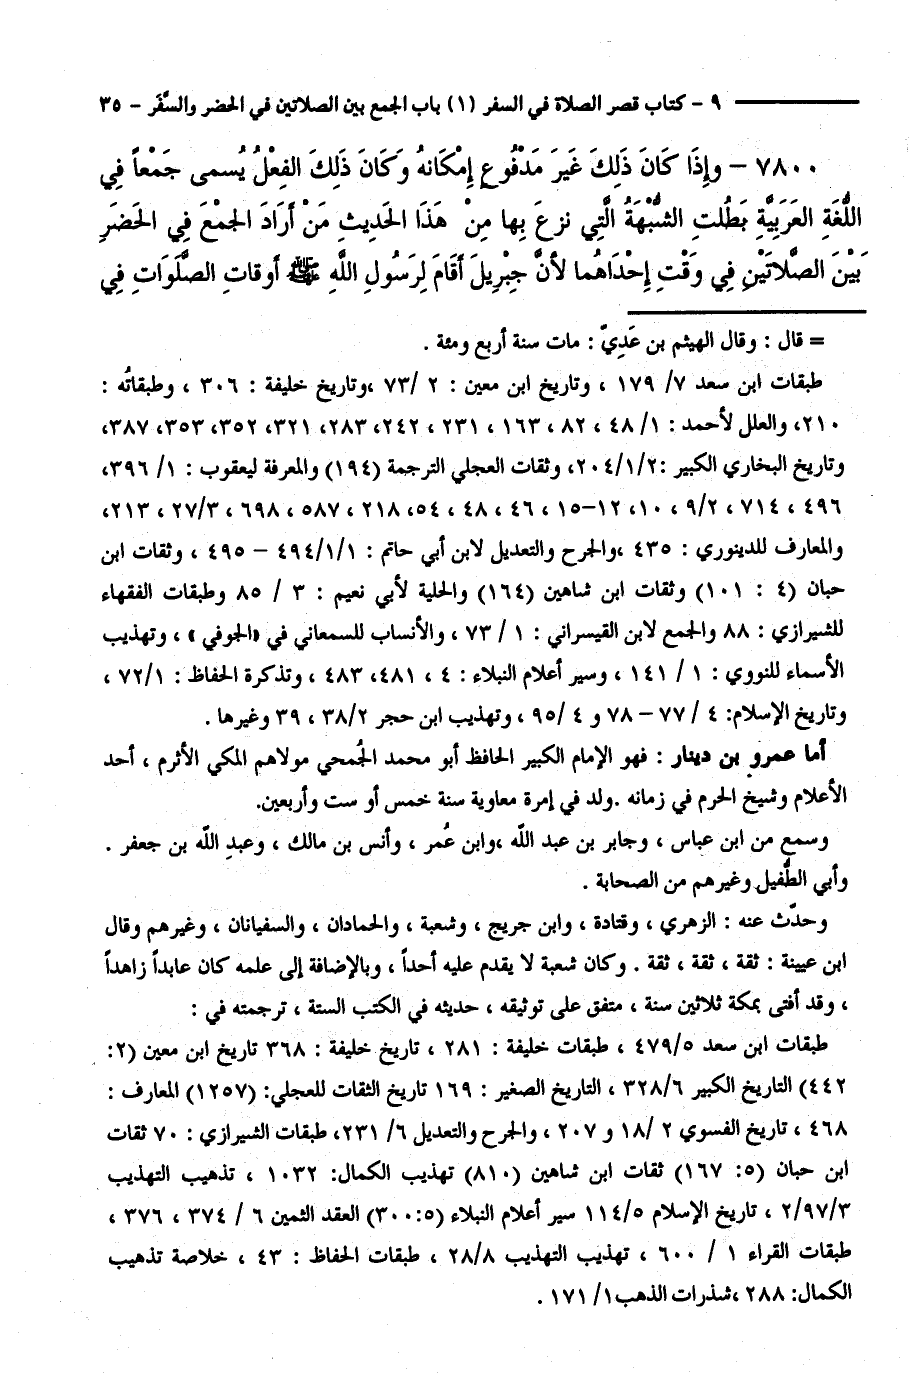 ٩ - كتاب قصر الصلاة في السفر (١) باب الجمع بين الصلاتين في الحضر والسَّفَر - ٣٥
٧٨٠٠ - وإِذَا كَانَ ذَلِكَ غَيرَ مَدْفُوعٍ إِمْكَانهُ وَكَانَ ذَلِكَ الفِعْلُ يُسمى جَمْعاً فِي
اللُّغَةِ العَرَبِيَّةِ بَطُلتِ الشُّبْهَةُ الَّتِي نزعَ بِها مِنْ هَذَا الحَدِيثِ مَنْ أَرَادَ الجمْعَ فِي الحَضَرِ
بَيْنَ الصَّلاتَيْنِ فِي وَقْتِ إِحْدَاهُما لأنَّ جِبْرِيلَ أقَامَ لِرَسُولِ اللَّهِ ﷺ أوقاتِ الصَّلَوَاتِ فِي
= قال : وقال الهيثم بن عَدِيّ : مات سنة أربع ومئة .
طبقات ابن سعد ٧/ ١٧٩ ، وتاريخ ابن معين : ٢ /٧٣ ،وتاريخ خليفة : ٣٠٦ ، وطبقاتُه :
٢١٠، والعلل لأحمد : ١/ ٤٨ ، ٨٢ ، ١٦٣ ، ٢٣١ ، ٢٤٢، ٢٨٣، ٣٢١، ٣٥٢، ٣٥٣، ٣٨٧،
وتاريخ البخاري الكبير :٢٠٤/١/٢، وثقات العجلي الترجمة (١٩٤) والمعرفة ليعقوب : ١/ ٣٩٦،
٤٩٦ ، ٧١٤ ، ٩/٢ ، ١٠، ١٢-١٥ ، ٤٦ ، ٤٨ ، ٥٤، ٢١٨ ، ٥٨٧ ، ٦٩٨ ، ٢٧/٣ ، ٢١٣،
والمعارف للدينوري : ٤٣٥ ،والجرح والتعديل لابن أبي حاتم : ٤٩٤/١/١ - ٤٩٥ ، وثقات ابن
حبان (٤ : ١٠١) وثقات ابن شاهين (١٦٤) والحلية لأبي نعيم : ٣ / ٨٥ وطبقات الفقهاء
للشيرازي : ٨٨ والجمع لابن القيسراني : ١ / ٧٣ ، والأنساب للسمعاني في «الجوفي» ، وتهذيب
الأسماء للنووي : ١ / ١٤١ ، وسير أعلام النبلاء : ٤ ، ٤٨١، ٤٨٣ ، وتذكرة الحفاظ : ٧٢/١ ،
وتاريخ الإسلام: ٤ / ٧٧ - ٧٨ و ٤ /٩٥ ، وتهذيب ابن حجر ٣٨/٢ ، ٣٩ وغيرها .
أما عمرو بن دينار : فهو الإمام الكبير الحافظ أبو محمد الجُمحي مولاهم المكي الأثرم ، أحد
الأعلام وشيخ الحرم في زمانه .ولد في إمرة معاوية سنة خمس أو ست وأربعين.
وسمع من ابن عباس ، وجابر بن عبد اللّه ،وابن عُمر ، وأنس بن مالك ، وعبدِ اللّه بن جعفر .
وأبي الطُّفيل وغيرهم من الصحابة .
وحدّث عنه : الزهري ، وقتادة ، وابن جريج ، وشعبة ، والحمادان ، والسفيانان ، وغيرهم وقال
ابن عيينة : ثقة ، ثقة ، ثقة . وكان شعبة لا يقدم عليه أحداً ، وبالإضافة إلى علمه كان عابداً زاهداً
، وقد أفتى بمكة ثلاثين سنة ، متفق على توثيقه ، حديثه في الكتب الستة ، ترجمته في :
طبقات ابن سعد ٤٧٩/٥ ، طبقات خليفة : ٢٨١ ، تاريخ خليفة : ٣٦٨ تاريخ ابن معين (٢:
٤٤٢) التاريخ الكبير ٣٢٨/٦ ، التاريخ الصغير : ١٦٩ تاريخ الثقات للعجلي: (١٢٥٧) المعارف :
٤٦٨ ، تاريخ الفسوي ٢ /١٨ و ٢٠٧ ، والجرح والتعديل ٦/ ٢٣١، طبقات الشيرازي : ٧٠ ثقات
ابن حبان (٥: ١٦٧) ثقات ابن شاهين (٨١٠) تهذيب الكمال: ١٠٣٢ ، تذهيب التهذيب
٢/٩٧/٣ ، تاريخ الإسلام ١١٤/٥ سير أعلام النبلاء (٥:٣٠٠) العقد الثمين ٦ / ٣٧٤ ، ٣٧٦ ،
طبقات القراء ١ / ٦٠٠ ، تهذيب التهذيب ٢٨/٨ ، طبقات الحفاظ : ٤٣ ، خلاصة تذهيب
الكمال: ٢٨٨ ،شذرات الذهب١/ ١٧١ .